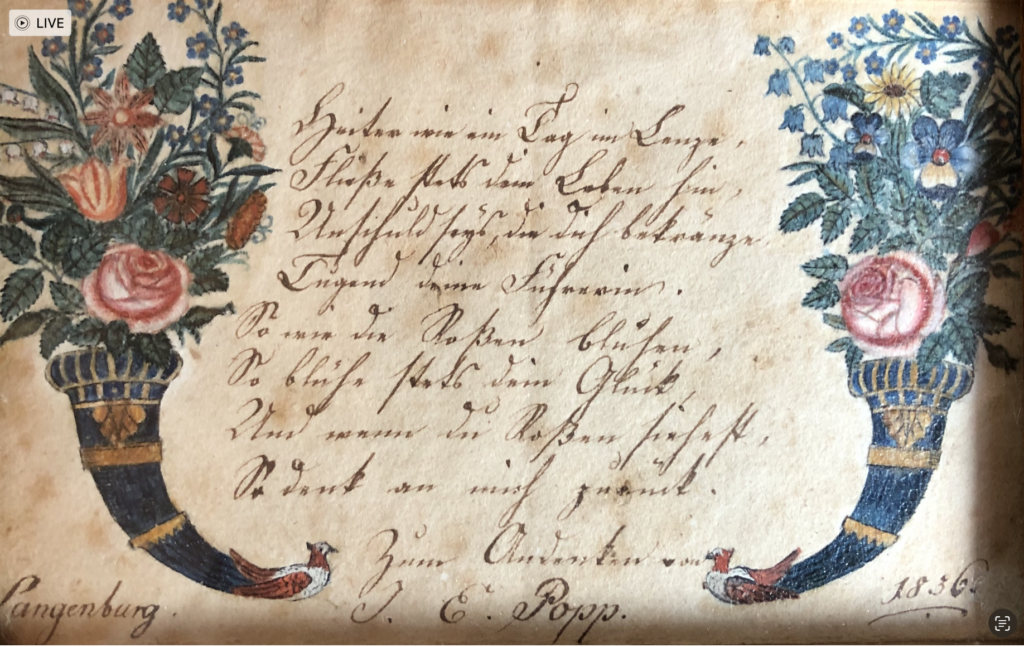 LIVE
Heiter wie ein Tag im Lenze,
Fließe stets dein Leben hin,
Unschuld seys, die dich bekränze
Tugend deine Führerin.
So wie die Roßen blühen,
So blühe stets dein Glück,
Und wenn du Roßen siehest,
So denk an mich zurück.
Zum Andenken von
J. E. Popp.
Langenburg.
1836.